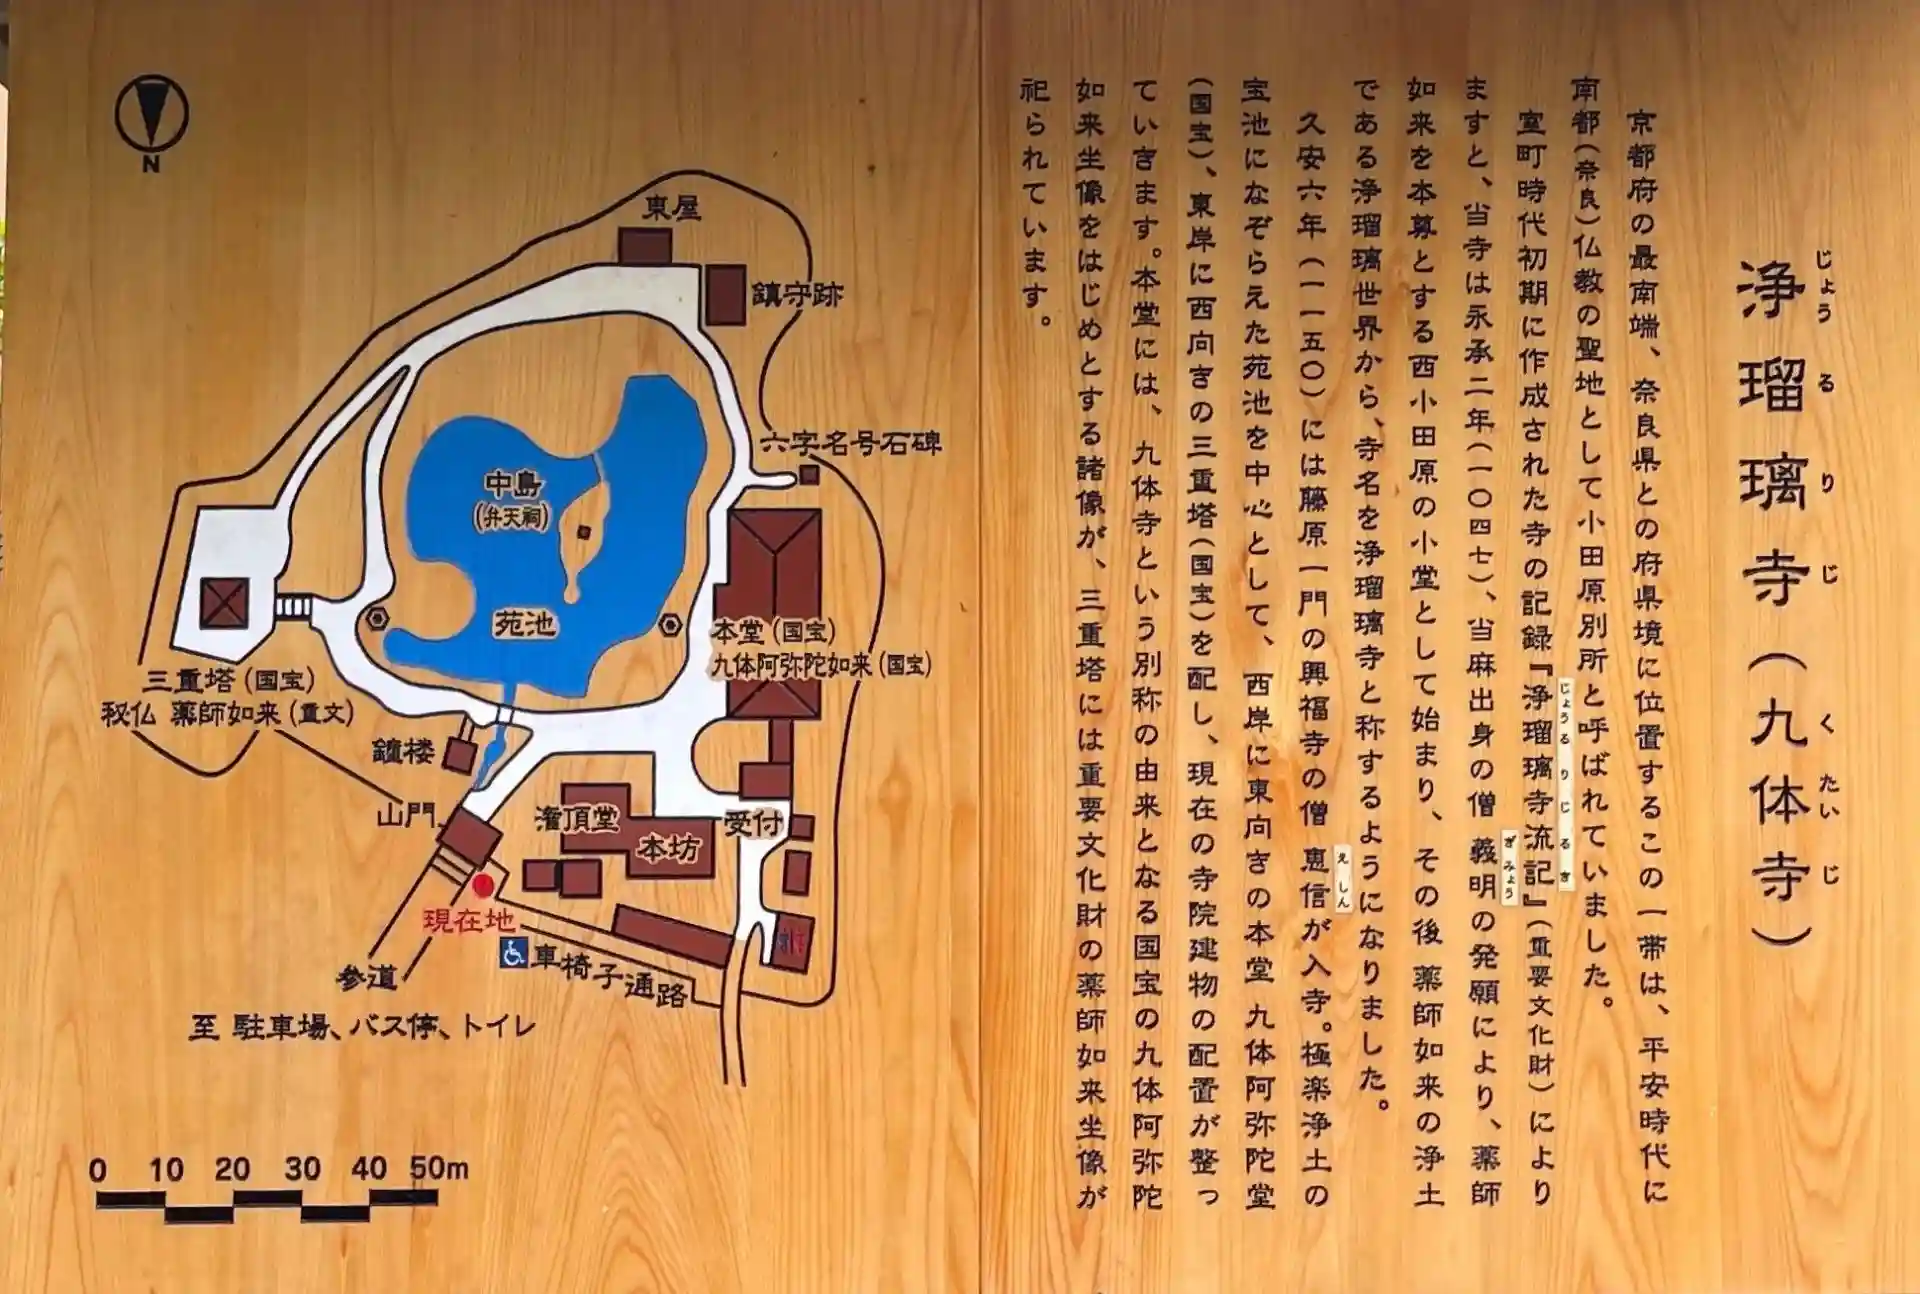 浄瑠璃寺(九体寺)
じょうるりじ くたいじ
京都府の最南端、奈良県との府県境に位置するこの一帯は、平安時代に
南都(奈良)仏教の聖地として小田原別所と呼ばれていました。
室町時代初期に作成された寺の記録『浄瑠璃寺流記』(重要文化財)により
じょうるりじるき
ますと、当寺は永承二年(一〇四七)、当麻出身の僧 義明の発願により、薬師
ぎみょう
如来を本尊とする西小田原の小堂として始まり、その後 薬師如来の浄土
である浄瑠璃世界から、寺名を浄瑠璃寺と称するようになりました。
久安六年(一一五〇)には藤原一門の興福寺の僧 恵信が入寺。極楽浄土の
えしん
宝池になぞらえた苑池を中心として、西岸に東向きの本堂 九体阿弥陀堂
(国宝)、東岸に西向きの三重塔(国宝)を配し、現在の寺院建物の配置が整っ
ていきます。本堂には、九体寺という別称の由来となる国宝の九体阿弥陀
如来坐像をはじめとする諸像が、三重塔には重要文化財の薬師如来坐像が
祀られています。
N
東屋
鎮守跡
六字名号石碑
中島
(弁天祠)
苑池
本堂(国宝)
九体阿弥陀如来(国宝)
三重塔(国宝)
秘仏 薬師如来(重文)
鐘楼
山門
灌頂堂
本坊
受付
現在地
車椅子通路
参道
至 駐車場、バス停、トイレ
0 10 20 30 40 50m